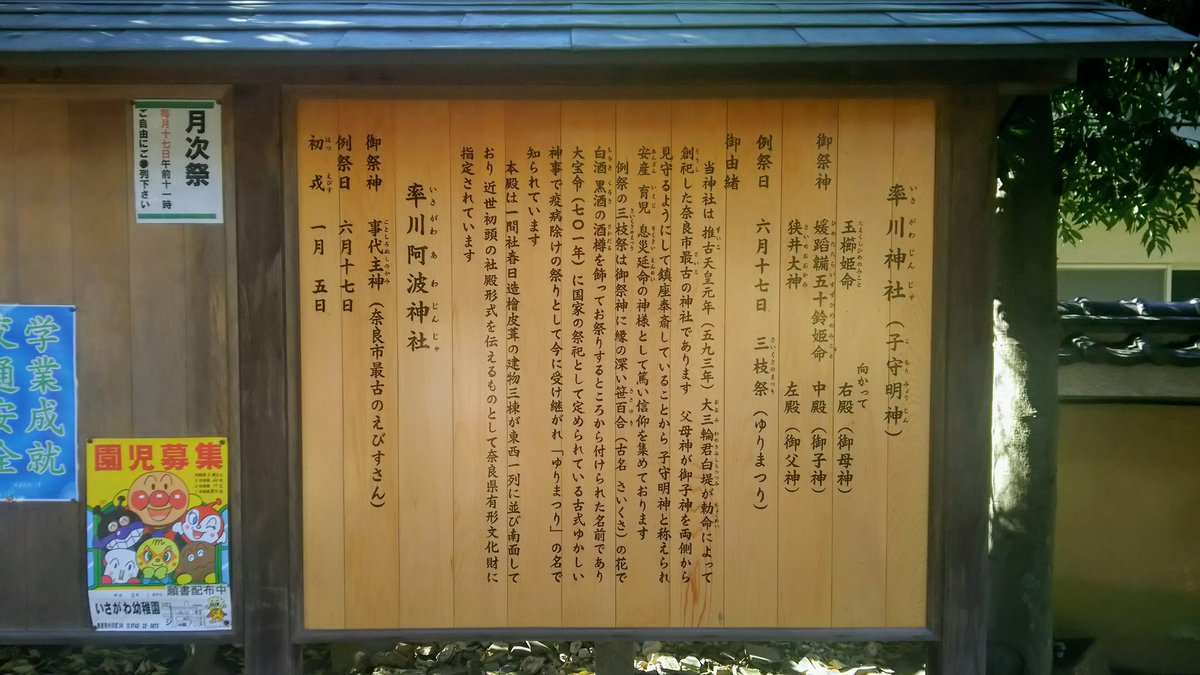 率川神社(子守明神)
いさがわじんじゃ
こもりみょうじん
御祭神
玉櫛姫命
たまくしひめのみこと
媛蹈韛五十鈴姫命
ひめたたらいすずひめのみこと
狭井大神
さいのおおかみ
向かって
右殿(御母神)
中殿(御子神)
左殿(御父神)
例祭日 六月十七日 三枝祭(ゆりまつり)
さいくさのまつり
御由緒
当神社は 推古天皇元年(五九三年)大三輪君白堤が勅命によって
創祀した奈良市最古の神社であります 父母神が御子神を両側から
見守るようにして鎮座奉斎していることから 子守明神と称えられ
安産 育児 息災延命の神様として篤い信仰を集めております
例祭の三枝祭は御祭神に縁の深い笹百合(古名 さいくさ)の花で
白酒 黒酒の酒樽を飾ってお祭りするところから付けられた名前であり
大宝令(七〇一年)に国家の祭祀として定められている古式ゆかしい
神事で疫病除けの祭りとして今に受け継がれ「ゆりまつり」の名で
知られています
本殿は一間社春日造檜皮葺の建物三棟が東西一列に並び南面して
おり 近世初頭の社殿形式を伝えるものとして奈良県有形文化財に
指定されています
率川阿波神社
いさがわあわじんじゃ
御祭神 事代主神(奈良市最古のえびすさん)
ことしろぬしのかみ
例祭日 六月十七日
初戎 一月 五日
はつえびす
月次祭
毎月十七日午前十一時
ご自由にご参列下さい
学業成就
交通安全
園児募集
願書配布中
いさがわ幼稚園